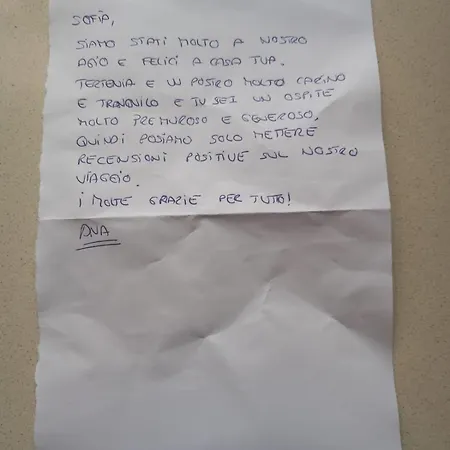 SOFIA,
SIAMO STATI MOLTO A NOSTRO
AGIO E FELICI A CASA TUA.
TERTENIA E UN POSTRO MOLTO CARINO
E TRANQUILO E TU SEI UN OSPITE
MOLTO PREMUROSO E GENEROSO,
QUINDI POSIAMO SOLO METTERE
RECENSIONI POSITIVE SUL NOSTRO
VIAGGIO.
¡ MOLTE GRAZIE PER TUTO!
ANA